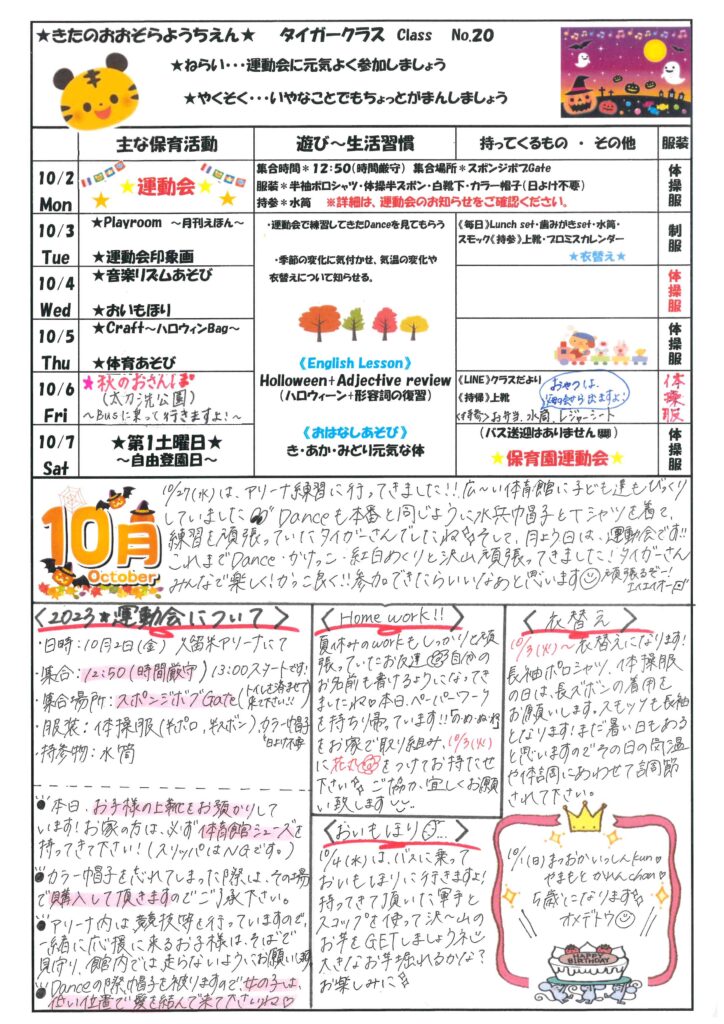 ★きたのおおぞらようちえん★ タイガークラス Class No.20
★ねらい・・・運動会に元気よく参加しましょう
★やくそく・・・いやなことでもちょっとがまんしましょう
主な保育活動 遊び～生活習慣 持ってくるもの ・ その他 服装
10/2 Mon
★運動会★
集合時間＊12:50(時間厳守) 集合場所＊スポンジボブGate
服装＊半袖ポロシャツ・体操半ズボン・白靴下・カラー帽子(日よけ不要)
持参＊水筒 ※詳細は、運動会のお知らせをご確認ください。
体操服
10/3 Tue
★Playroom ～月刊えほん～
★運動会印象画
・運動会で練習してきたDanceを見てもらう
・季節の変化に気付かせ、気温の変化や
衣替えについて知らせる。
《毎日》Lunch set・歯みがきset・水筒・
スモック《持参》上靴・プロミスカレンダー
★衣替え★
制服
10/4 Wed
★音楽リズムあそび
★おいもほり
体操服
10/5 Thu
★Craft～ハロウィンBag～
★体育あそび
《English Lesson》
Holloween+Adjective review
(ハロウィーン+形容詞の復習)
体操服
10/6 Fri
★秋のおさんぽ
(太刀洗公園)
～Busに乗って行きますよ!～
《LINE》クラスだより
《持帰》上靴
おやつは、
<持参>お弁当、水筒、レジャーシート
体操服
10/7 Sat
★第1土曜日★
～自由登園日～
《おはなしあそび》
き・あか・みどり元気な体
(バス送迎はありません)
★保育園運動会★
体操服
10月
October
10/27(水)は、アリーナ練習に行ってきました!!広～い体育館に子ども達もびっくり
していました Danceも本番と同じように水兵巾帽子とTシャツを着て、
練習を頑張っていたタイガーさんでしたねそして、月よう日は、運動会です!!
これまでDance・かけっこ・紅白めくりと沢山頑張ってきました!タイガーさん
みんなで楽しく!かっこ良く!!参加できたらいいなあと思います 頑張るぞー!
エイエイオー
〈2023★運動会について〉
・日時：10月2日(金) 久留米アリーナにて
・集合：12:50(時間厳守) 13:00スタートです!
・集合場所：スポンジボブGate(トイレを済ませて来て下さい!!)
・服装：体操服(半ポロ,半ズボン),カラー帽子
日よけ不要
・持参物：水筒
●本日、お子様の上靴をお預かりして
います!お家の方は、必ず体育館シューズを
持ってきて下さい!(スリッパはNGです。)
●カラー帽子を忘れてしまった際は、その場
で購入して頂きますのでご了承下さい。
●アリーナ内は、競技等を行っていますので、
一緒に応援に来るお子様は、そばで
見守り、館内では走らないようにお願いします
●Danceの際巾帽子を被りますので、女の子は、
低い位置で髪を結んで来て下さいね♡
〈Home work!!〉
夏休みのworkもしっかりと頑
張っていたお友達 自分の
お名前も書けるようになってき
ましたね♡本日、ペーパーワーク
を持ち帰っています!!「の・め・ぬ・ね」
をお家で取り組み、10/3(火)
に花丸をつけてお持たせ
下さい ご協力、宜しくお願
い致します
〈おいもほり〉
10/4(水)は、バスに乗って
おいもほりに行きますよ!
持ってきて頂いた軍手と
スコップを使って沢～山の
お芋をGETしましょうネ
大きなお芋掘れるかな?
お楽しみに
〈衣替え〉
10/3(火)～衣替えになります!
長袖ポロシャツ、体操服
の日は、長ズボンの着用を
お願いします。スモックも長袖
となります!まだ暑い日もある
と思いますのでその日の気温
や体調にあわせて調節
されて下さい。
10/1(日)まつおかいっしんkun
やまもとかれんchan
5歳になります
オメデトウ
HAPPY BIRTHDAY